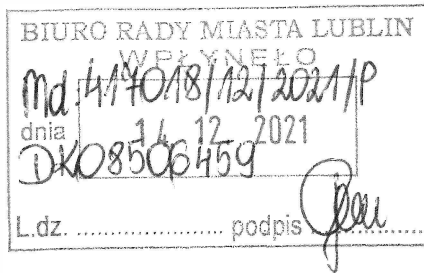 BIURO RADY MIASTA LUBLIN
WPŁYNĘŁO
Md. 417018/12/2021/P
dnia 14. 12. 2021
DKO8506459
L.dz. .................... podpis